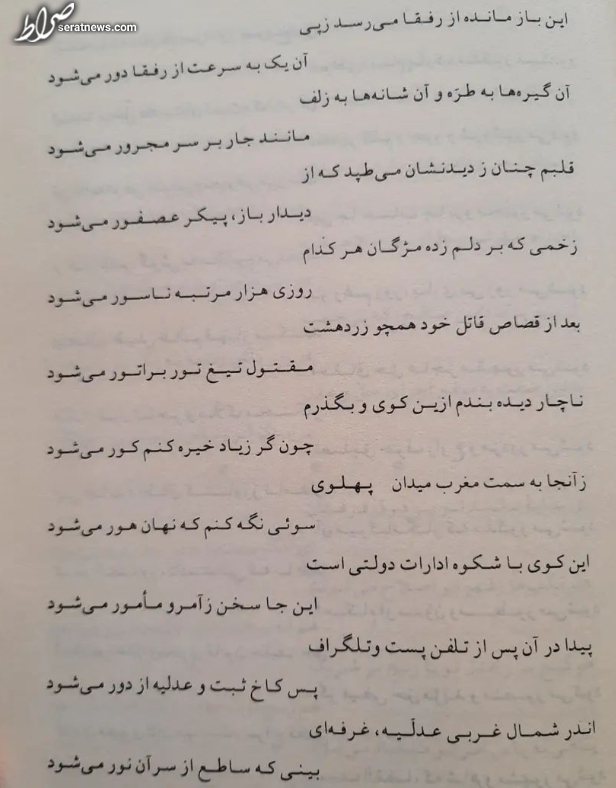 صراط
seratnews.com
این باز مانده از رفقا می‌رسد زپی
آن یک به سرعت از رفقا دور می‌شود
آن گیره‌ها به طرّه و آن شانه‌ها به زلف
مانند جار بر سر مجرور می‌شود
قلبم چنان ز دیدنشان می‌طپد که از
دیدار باز، پیکر عصفور می‌شود
زخمی که بر دلم زده مژگان هر کدام
روزی هزار مرتبه ناسور می‌شود
بعد از قصاص قاتل خود همچو زردهشت
مقتول تیغ تور براتور می‌شود
ناچار دیده بندم ازین کوی و بگذرم
چون گر زیاد خیره کنم کور می‌شود
زآنجا به سمت مغرب میدان پهلوی
سوئی نگه کنم که نهان هور می‌شود
این کوی با شکوه ادارات دولتی است
این جا سخن زآمرو مأمور می‌شود
پیدا در آن پس از تلفن پست وتلگراف
پس کاخ ثبت و عدلیه از دور می‌شود
اندر شمال غربی عدلّیه، غرفه‌ای
بینی که ساطع از سر آن نور می‌شود